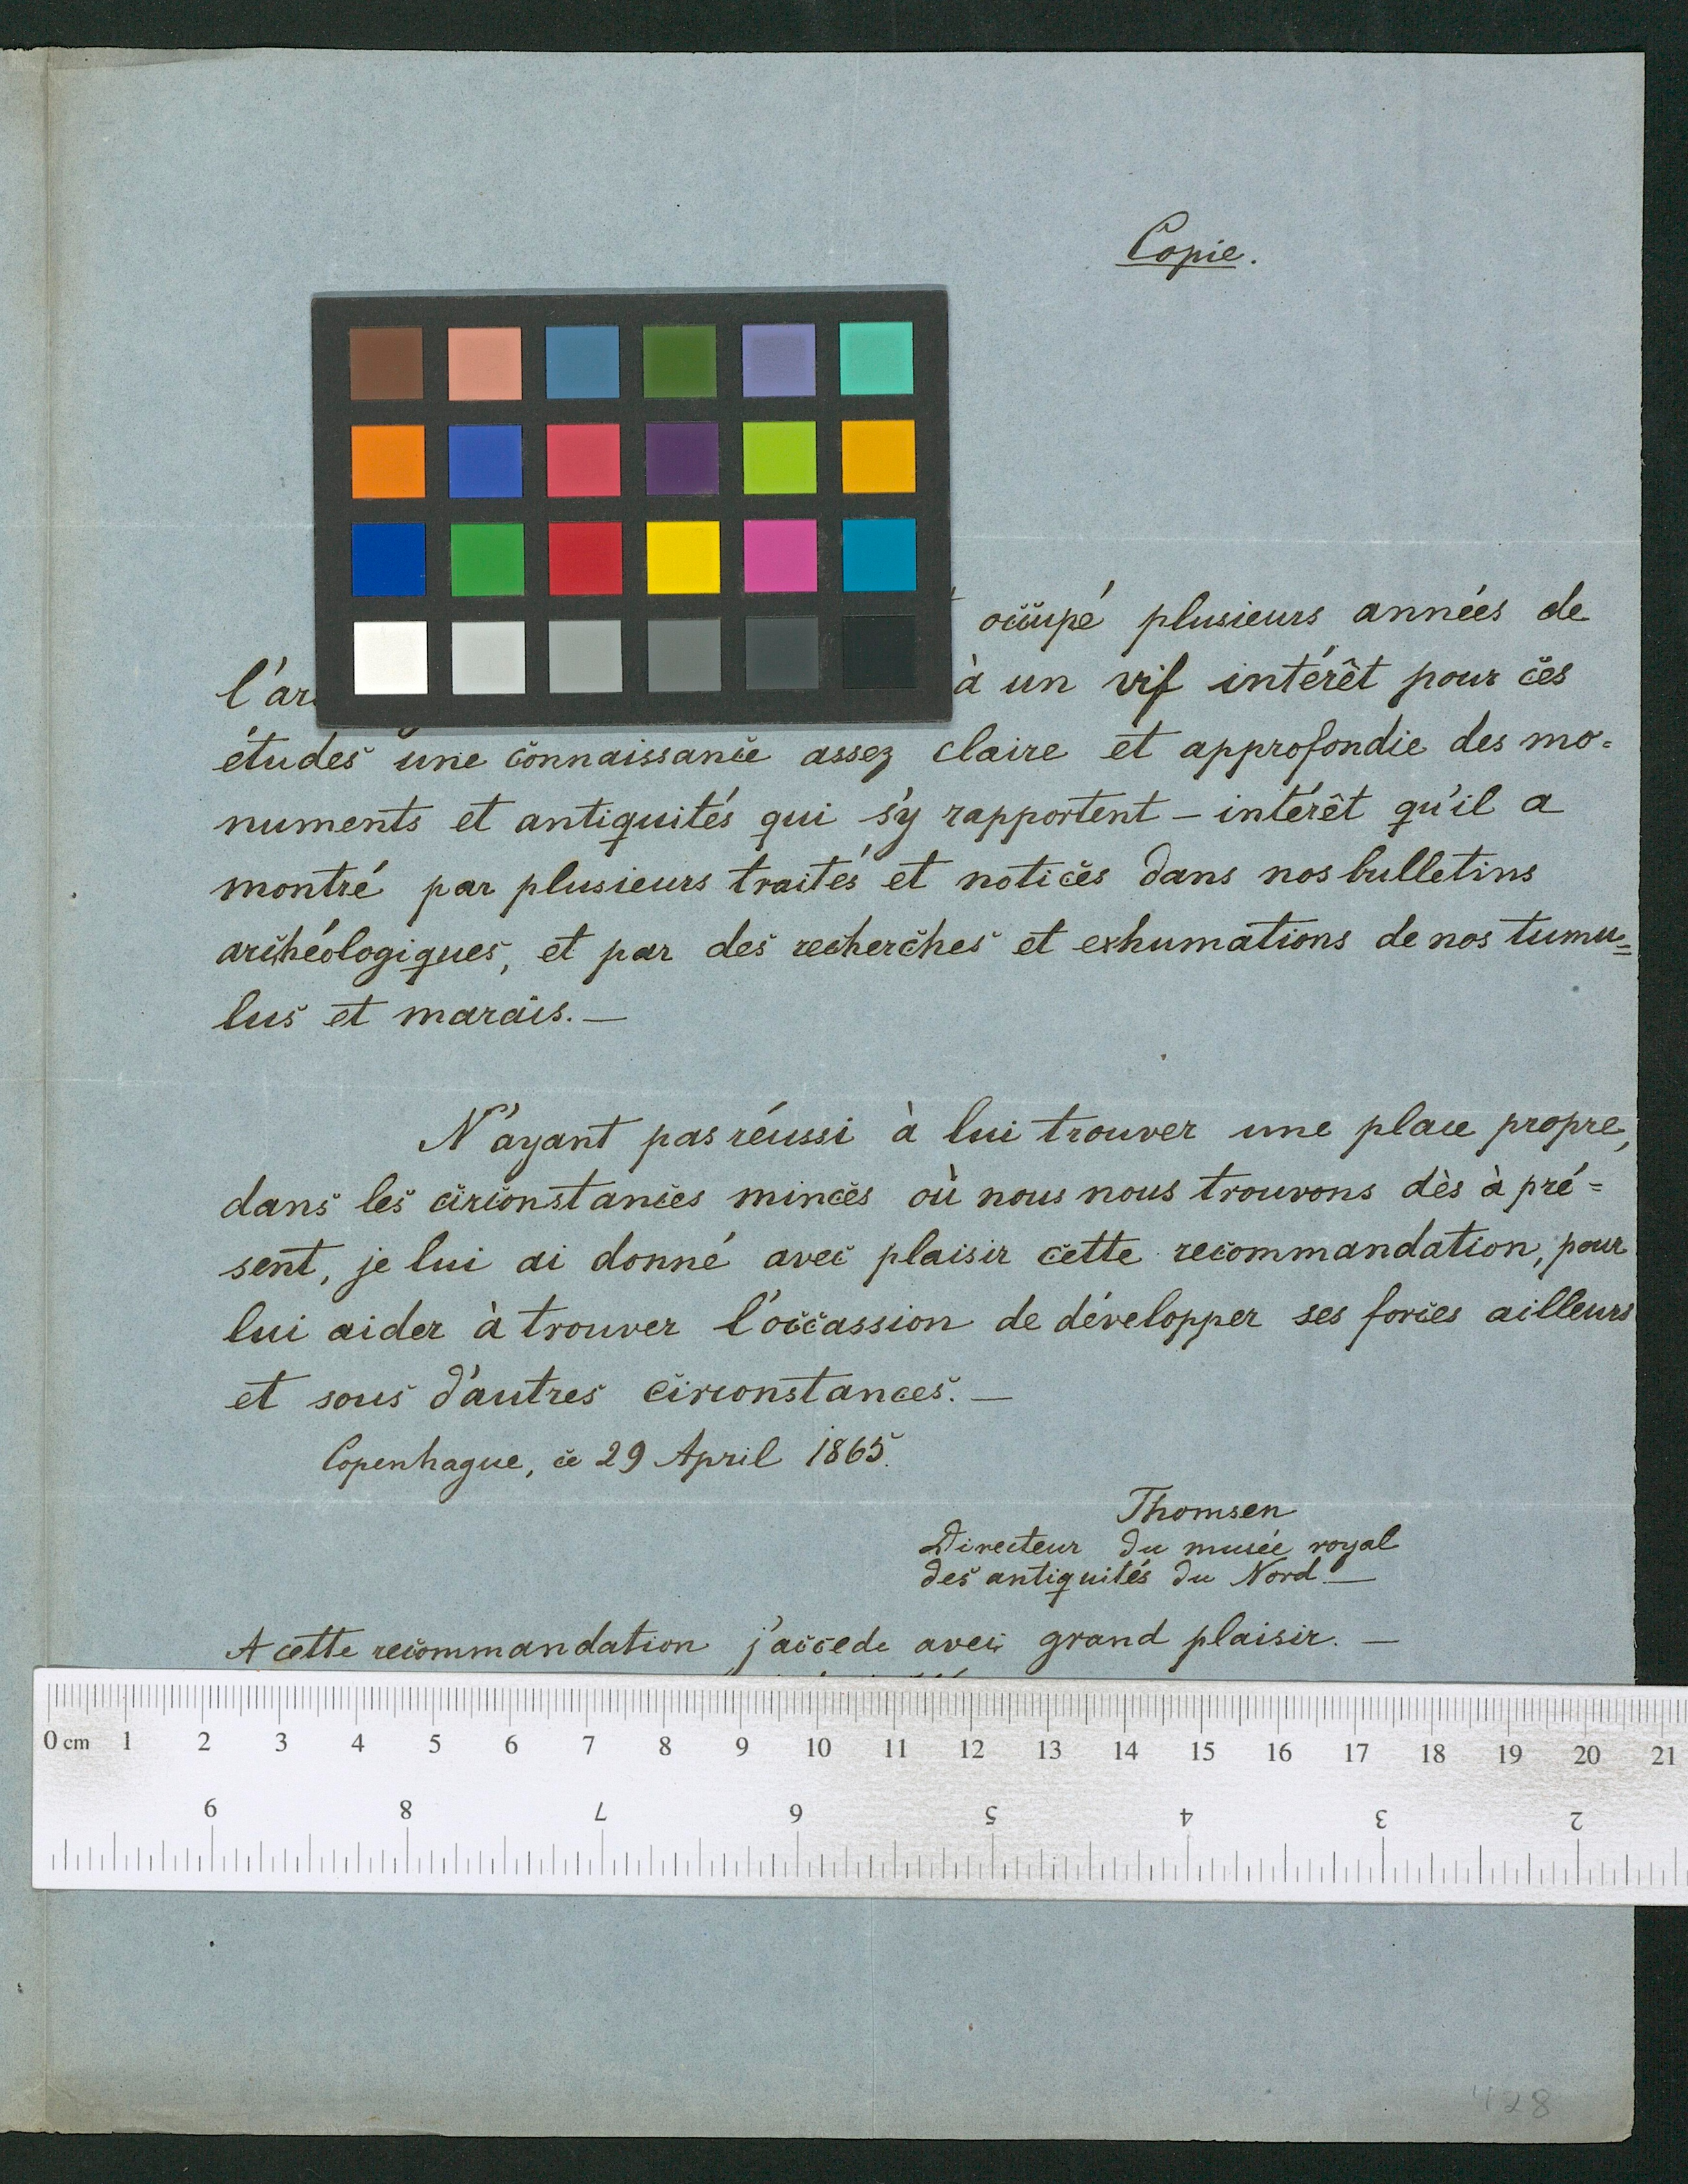 Copie.
occupé plusieurs années de
l'ar
à un vif intérêt pour ces
études une connaissance assez claire et approfondie des mo=
numents et antiquités qui s'y rapportent – intérêt qu'il a
montré par plusieurs traités et notices dans nos bulletins
archéologiques, et par des recherches et exhumations de nos tumu=
lus et marais. —
N'ayant pas réussi à lui trouver une place propre,
dans les circonstances minces où nous nous trouvons dès à pré=
sent, je lui ai donné avec plaisir cette recommandation, pour
lui aider à trouver l'occassion de développer ses forces ailleurs
et sous d'autres circonstances. —
Copenhague, ce 29 April 1865.
Thomsen
Directeur du musée royal
des antiquités du Nord —
A cette recommandation j'accede avec grand plaisir. —
0 cm 1 2 3 4 5 6 7 8 9 10 11 12 13 14 15 16 17 18 19 20 21
9 8 7 6 5 4 3 2
428